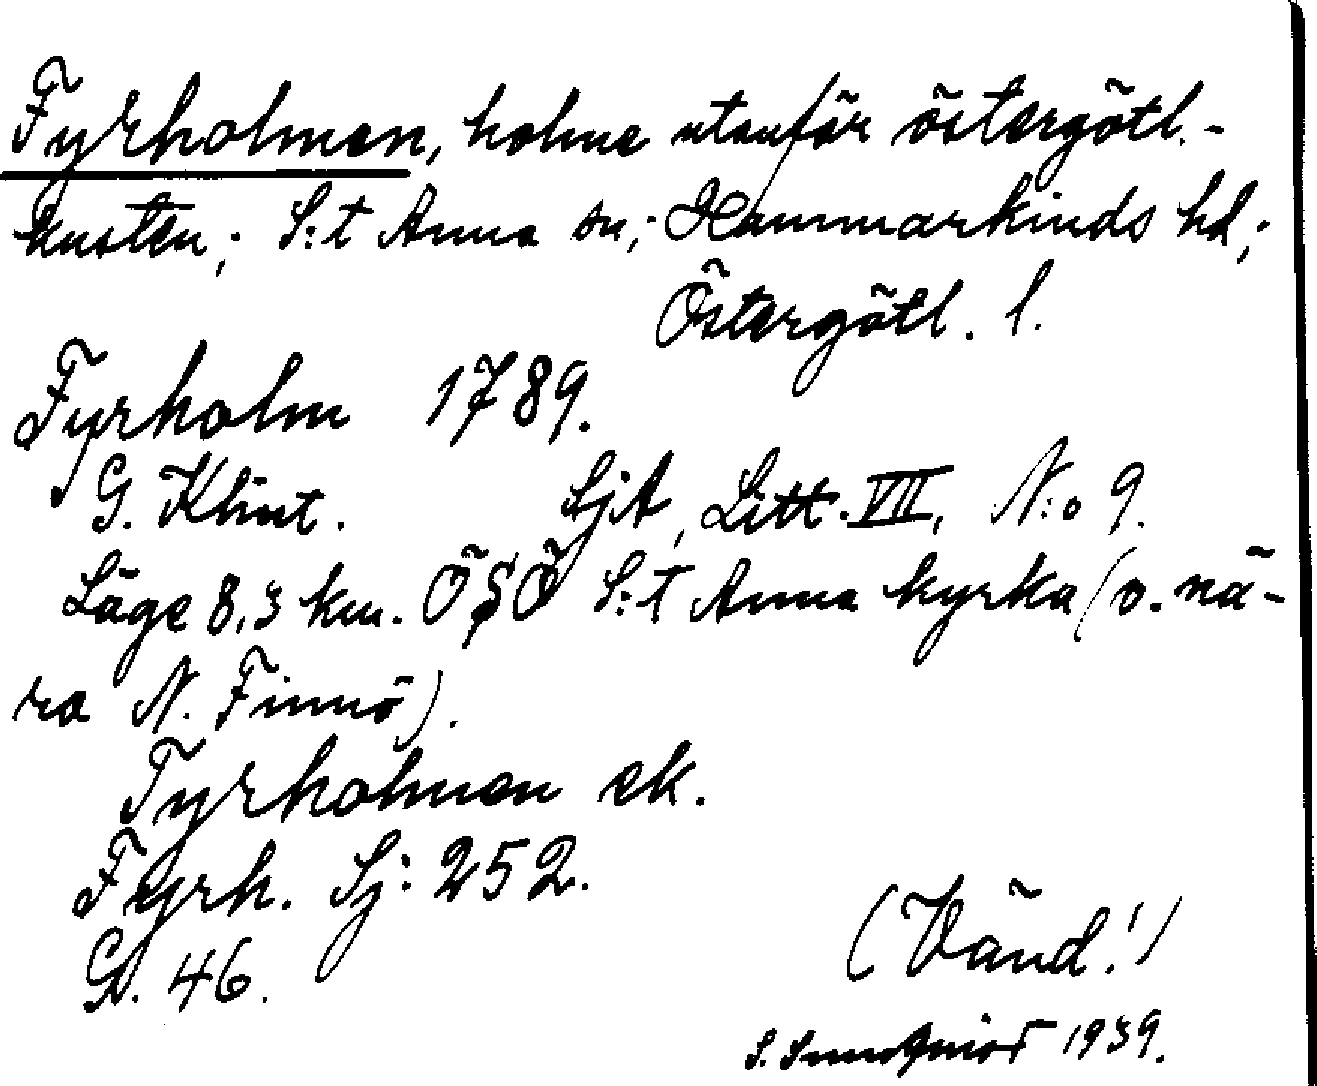 Fyrholmen, holme utanför östergötl.-
kusten; S:t Anna sn; Hammarkinds hd;
Östergötl. l.
Fyrholm 1789.
G. Klint. SjA, Litt. VII, N:o 9.
Läge 8,3 km. ÖSÖ S:t Anna kyrka (o. nä-
ra N. Finnö).
Fyrholmen ek.
Fyrh. Sj: 252.
G. 46.
(Vänd!)
S. Sundqvist 1939.